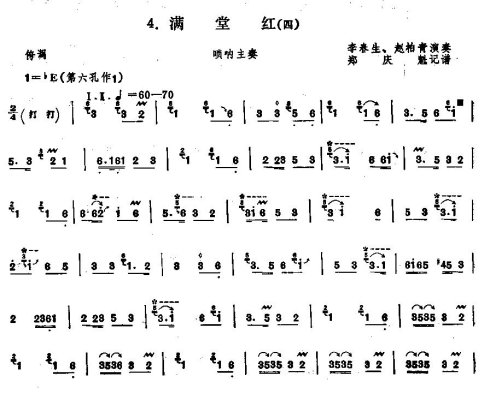 4. 满 堂 红(四)
侉调 唢呐主奏 李春生、赵柏青演奏
1=♭E(第六孔作1) 郑 庆 魁记谱
I.II.♩=60—70
2/4 (打 打) | 3 3 2 | 1 1 6 | 3 3 5 6 | 1 1 6 | 3. 5 6 i
5. 3 2 1 | 6.161 2 3 | 1 1 6 | 2 23 5 3 | 3.i 6 6i | 3. 5 3 2
1 1 6 | 6 62 i 6 | 5. 6 3 2 | 3i6 5 3 | 3i 6 | 5 3 3.i
2. i 6 5 | 3 3 1. 2 | 3 3 6 | 3. 5 6 i | 5 3 3.i | 6i65 453
2 2361 | 2 23 5 3 | 3.i 6 i | 1 1 6 | 3535 3 2
1 1 6 | 3536 3 2 | 1 1 6 | 3535 3 2 | 1 1 6 | 3535 3 2